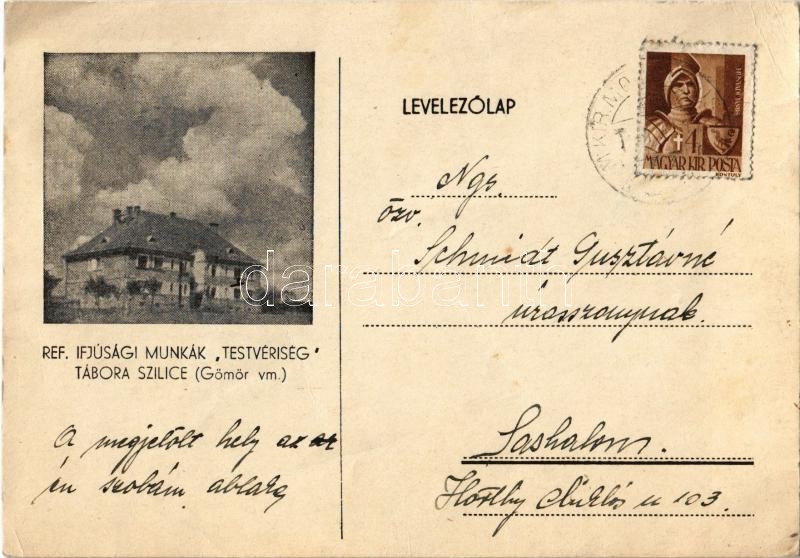 LEVELEZŐLAP
4f
MAGYAR KIR. POSTA
KONTULY
M.KIR.MO
Ngs.
özv.
Schmidt Gusztávné
úrasszonynak.
Sashalom.
Horthy Miklós u 103.
REF. IFJÚSÁGI MUNKÁK „TESTVÉRISÉG"
TÁBORA SZILICE (Gömör vm.)
A megjelölt hely az az
én szobám ablaka
darabanth